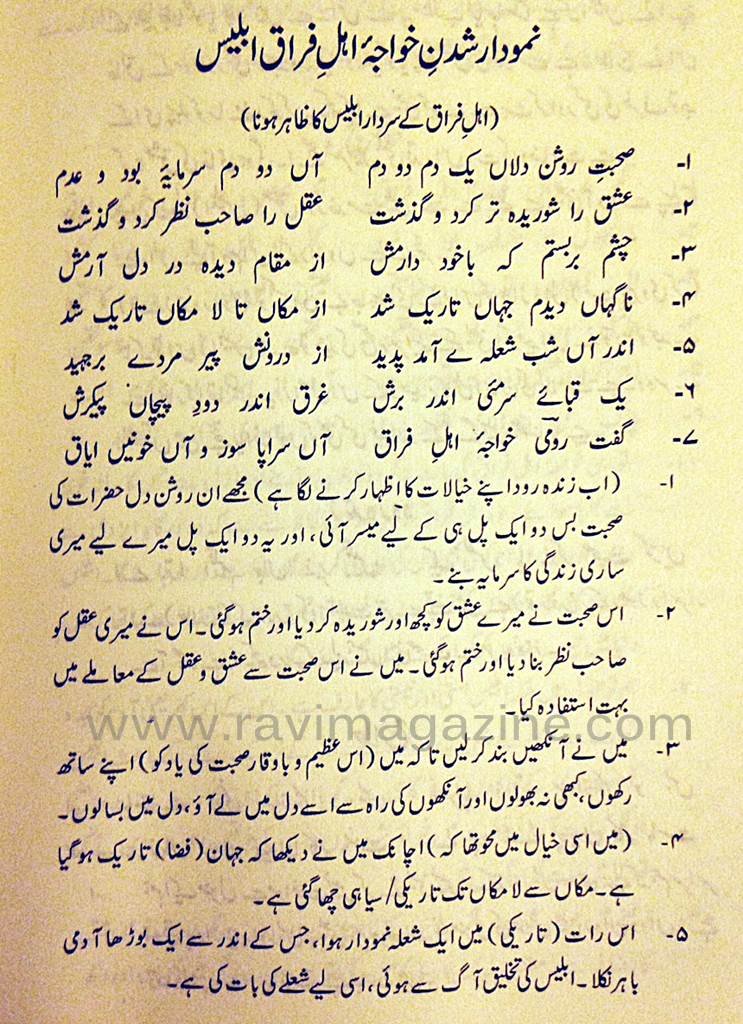 نمودار شدنِ خواجۂ اہلِ فراق ابلیس
(اہلِ فراق کے سردار ابلیس کا ظاہر ہونا)
۱- صحبتِ روشن دلاں یک دم دو دم آں دو دم سرمایۂ بود و عدم
۲- عشق را شوریدہ تر کرد و گذشت عقل را صاحب نظر کرد و گذشت
۳- چشم بربستم کہ باخود دارمش از مقام دیدہ در دل آرمش
۴- ناگہاں دیدم جہاں تاریک شد از مکاں تا لا مکاں تاریک شد
۵- اندر آں شب شعلہ ے آمد پدید از درونش پیر مردے برجہید
۶- یک قبائے سرمئی اندر برش غرق اندر دودِ پیچاں پیکرش
۷- گفت رومیؒ خواجۂ اہلِ فراق آں سراپا سوز و آں خونیں ایاق
۱- (اب زندہ رود اپنے خیالات کا اظہار کرنے لگا ہے) مجھے ان روشن دل حضرات کی
صحبت بس دو ایک پل ہی کے لیے میسر آئی، اور یہ دو ایک پل میرے لیے میری
ساری زندگی کا سرمایہ بنے۔
۲- اس صحبت نے میرے عشق کو کچھ اور شوریدہ کر دیا اور ختم ہوگئی۔ اس نے میری عقل کو
صاحب نظر بنا دیا اور ختم ہوگئی۔ میں نے اس صحبت سے عشق و عقل کے معاملے میں
بہت استفادہ کیا۔
www.ravimagazine.com
۳- میں نے آنکھیں بند کر لیں تاکہ میں (اس عظیم و باوقار صحبت کی یاد کو) اپنے ساتھ
رکھوں، کبھی نہ بھولوں اور آنکھوں کی راہ سے اسے دل میں لے آؤ، دل میں بسالوں۔
۴- (میں اسی خیال میں محو تھا کہ) اچانک میں نے دیکھا کہ جہان (فضا) تاریک ہوگیا
ہے۔ مکاں سے لا مکاں تک تاریکی/سیاہی چھا گئی ہے۔
۵- اس رات (تاریکی) میں ایک شعلہ نمودار ہوا، جس کے اندر سے ایک بوڑھا آدمی
باہر نکلا۔ ابلیس کی تخلیق آگ سے ہوئی، اسی لیے شعلے کی بات کی ہے۔